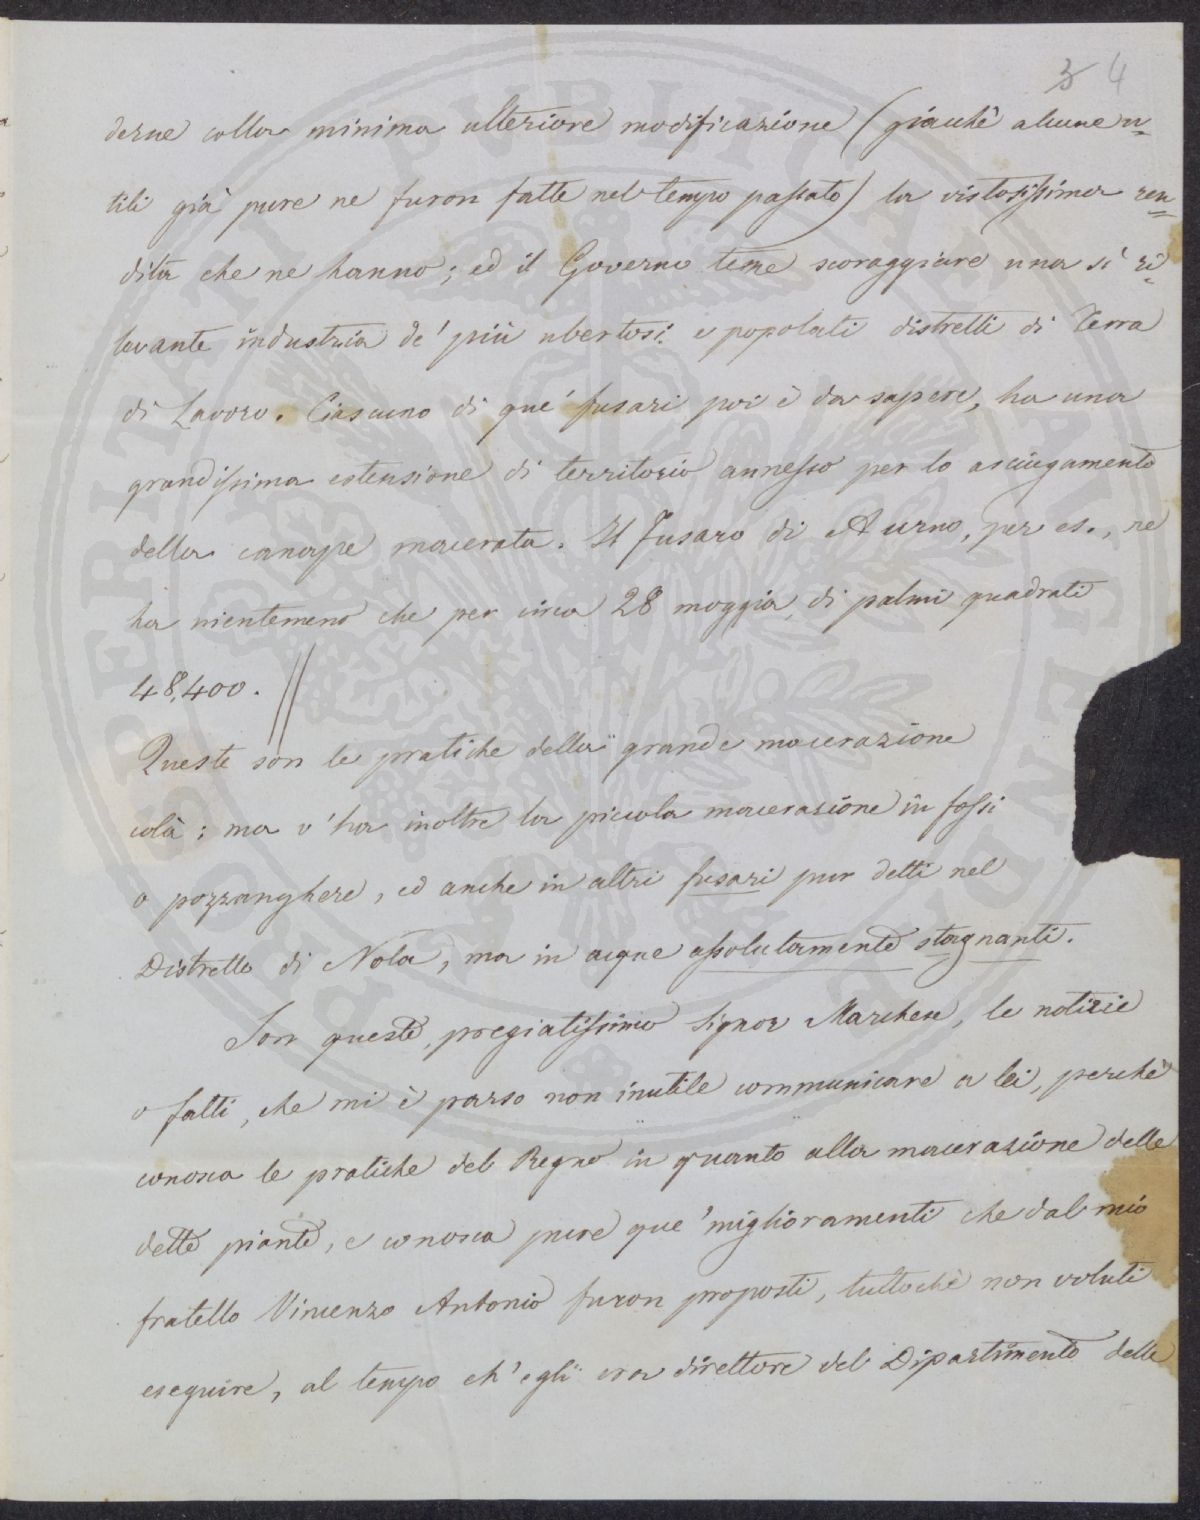 3 4
derne colla minima ulteriore modificazione (giacchè alcune u-
tili già pure ne furon fatte nel tempo passato) la vistosissima ren-
dita che ne hanno; ed il Governo teme scoraggiare una sì ri-
levante industria de' più ubertosi e popolati distretti di Terra
di Lavoro. Ciascuno di que' fusari poi è da sapere, ha una
grandissima estensione di territorio annesso per lo asciugamento
della canape macerata. Il Fusaro di Aurno, per es., ne
ha nientemeno che per circa 28 moggia di palmi quadrati
48,400. //
Queste son le pratiche della grande macerazione
colà; ma v'ha inoltre la piccola macerazione in fossi
o pozzanghere, ed anche in altri fusari pur detti nel
Distretto di Nola, ma in acque assolutamente stagnanti.
Son queste, pregiatissimo Signor Marchese, le notizie
o fatti, che mi è parso non inutile communicare a lei, perchè
conosca le pratiche del Regno in quanto alla macerazione delle
dette piante, e conosca pure que' miglioramenti che dal mio
fratello Vincenzo Antonio furon proposti, tuttochè non voluti
eseguire, al tempo ch'egli era direttore del Dipartimento delle
PROSPERITATI PVBLICAE AVGENDAE